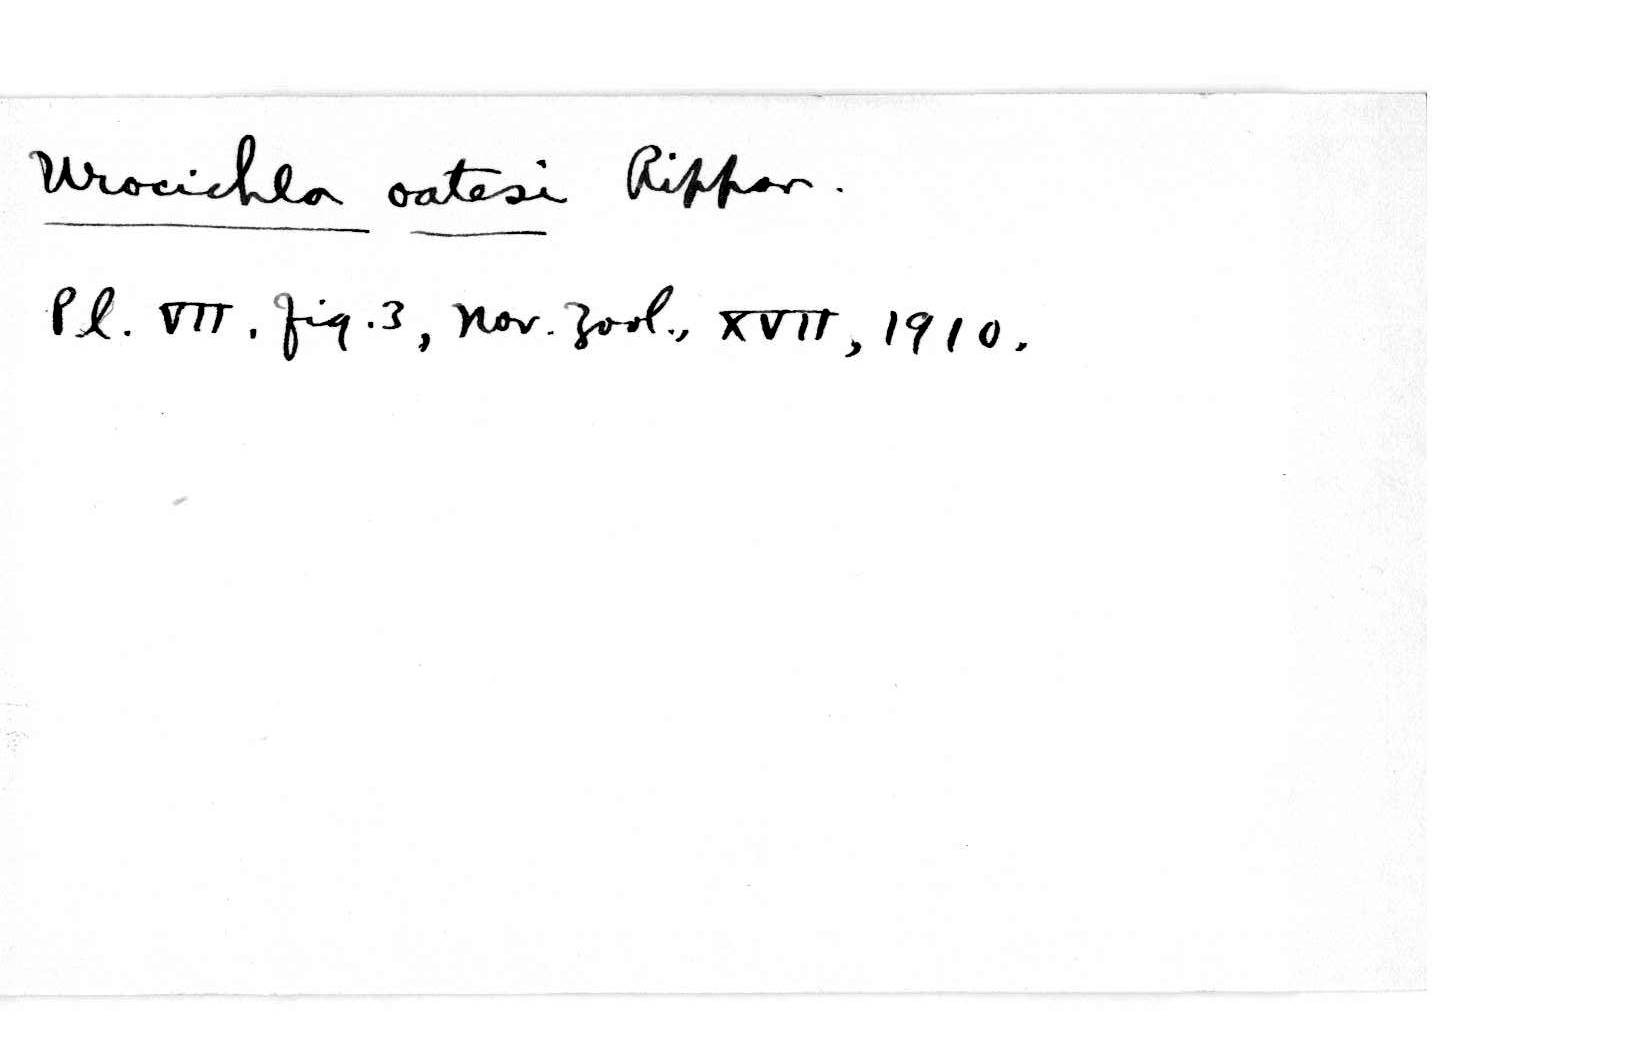 Urocichla oatesi Rippon.
Pl. VII. fig. 3, Nov. Zool., XVII, 1910.